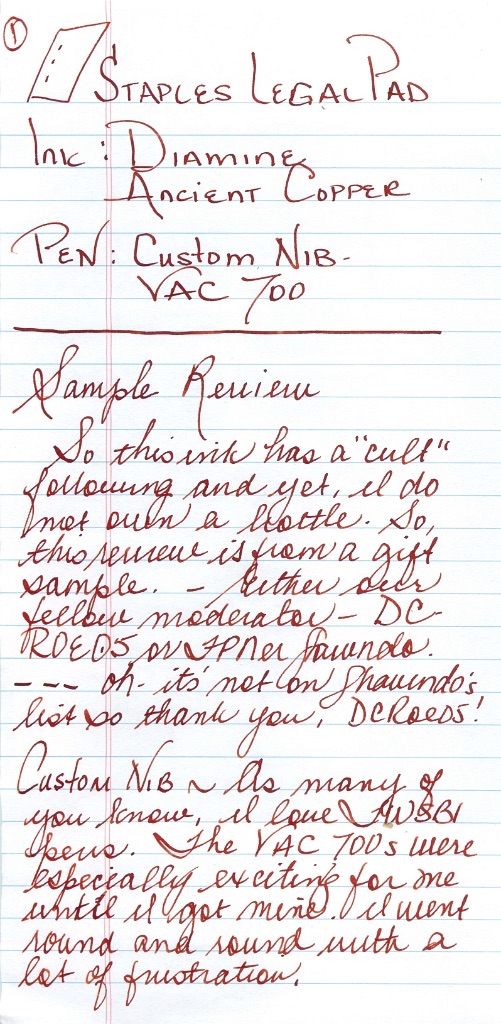 1
STAPLES LEGAL PAD
INK: DIAMINE
ANCIENT COPPER
PEN: CUSTOM NIB-
VAC 700
Sample Review
So this ink has a "cult"
following and yet, I do
not own a bottle. So,
this review is from a gift
sample. - Either our
fellow moderator - DC-
ROED5, or FPNer
--- oh- it's not on
list so thank you, DCRoed5!
CUSTOM NIB ~ As many of
you know, I love TWSBI
pens. The VAC 700s were
especially exciting for me
until I got mine. I went
round and round with a
lot of frustration.